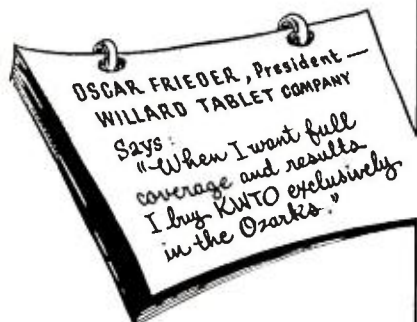 OSCAR FRIEDER, President —
WILLARD TABLET COMPANY
Says:
"When I want full
coverage and results
I buy KWTO exclusively
in the Ozarks."